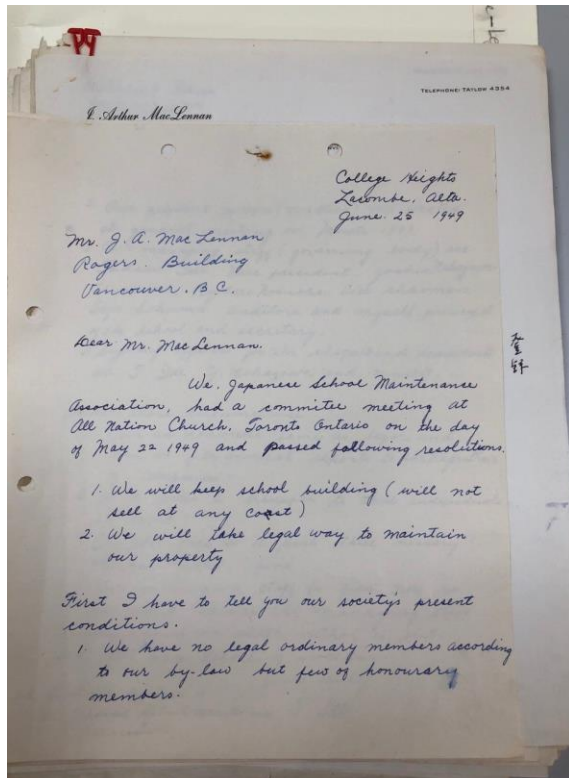 TELEPHONE: TAYLOR 4354
J. Arthur MacLennan
College Heights
Lacombe, Alta.
June. 25 1949
Mr. J. A. Mac Lennan
Rogers. Building
Vancouver. B.C.
Dear Mr. MacLennan.
We, Japanese School Maintenance
Association, had a commitee meeting at
All Nation Church, Toronto Ontario on the day
of May 22 1949 and passed following resolutions.
1. We will keep school building (will not
sell at any coast)
2. We will take legal way to maintain
our property
First I have to tell you our society's present
conditions.
1. We have no legal ordinary members according
to our by-law but few of honourary
members.